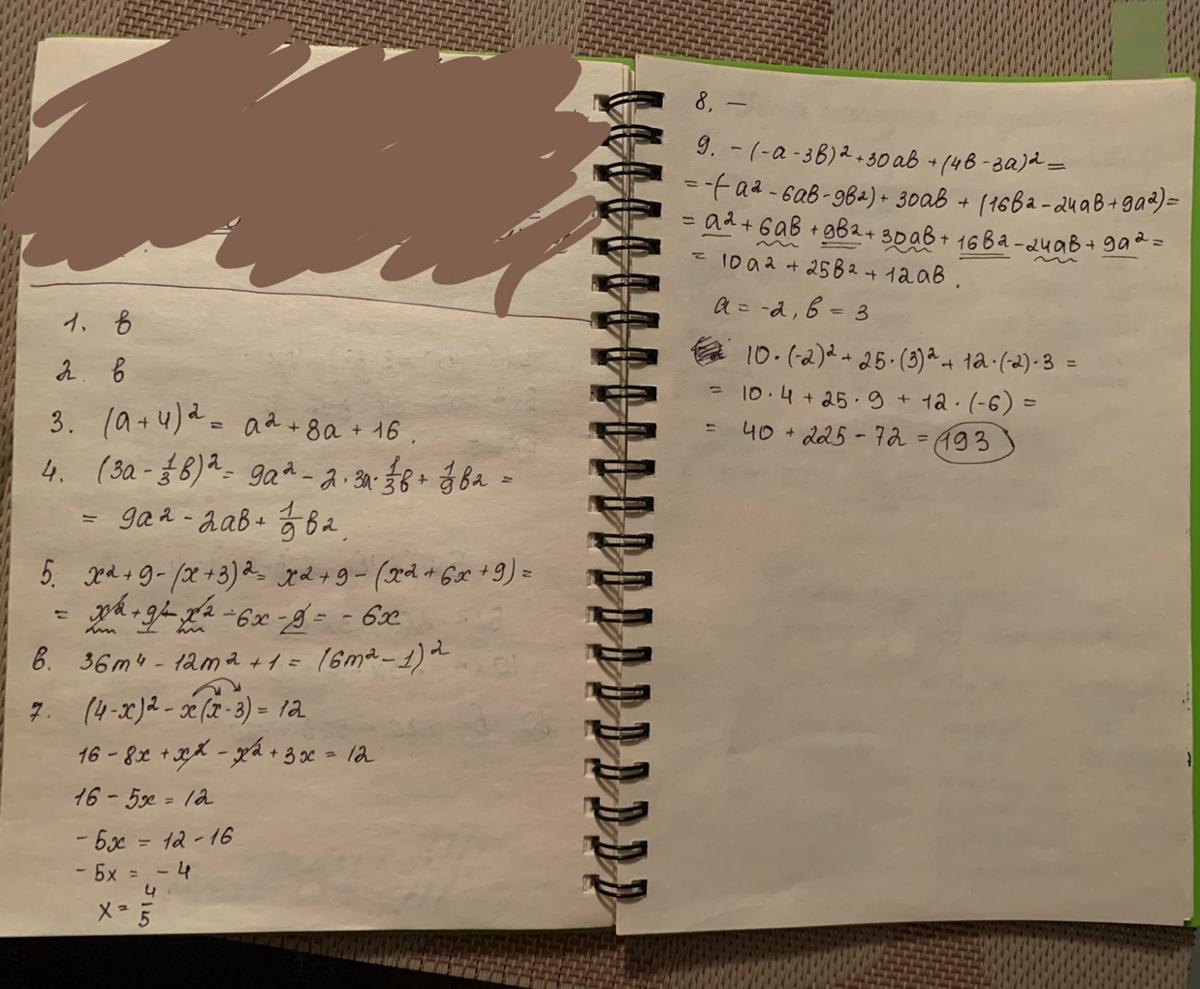 1. в
2. в
3. (a + 4)² = a² + 8a + 16.
4. (3a - 1/3в)² = 9a² - 2·3a·1/3в + 1/9в² =
= 9a² - 2aв + 1/9в².
5. x² + 9 - (x + 3)² = x² + 9 - (x² + 6x + 9) =
= x² + 9 - x² - 6x - 9 = - 6x
6. 36m⁴ - 12m² + 1 = (6m² - 1)²
7. (4 - x)² - x(x - 3) = 12
16 - 8x + x² - x² + 3x = 12
16 - 5x = 12
- 5x = 12 - 16
- 5x = - 4
x = 4/5
8. —
9. - (-a - 3в)² + 30aв + (4в - 3a)² =
= -(-a² - 6aв - 9в²) + 30aв + (16в² - 24aв + 9a²) =
= a² + 6aв + 9в² + 30aв + 16в² - 24aв + 9a² =
= 10a² + 25в² + 12aв.
a = -2, в = 3
10·(-2)² + 25·(3)² + 12·(-2)·3 =
= 10·4 + 25·9 + 12·(-6) =
= 40 + 225 - 72 = 193